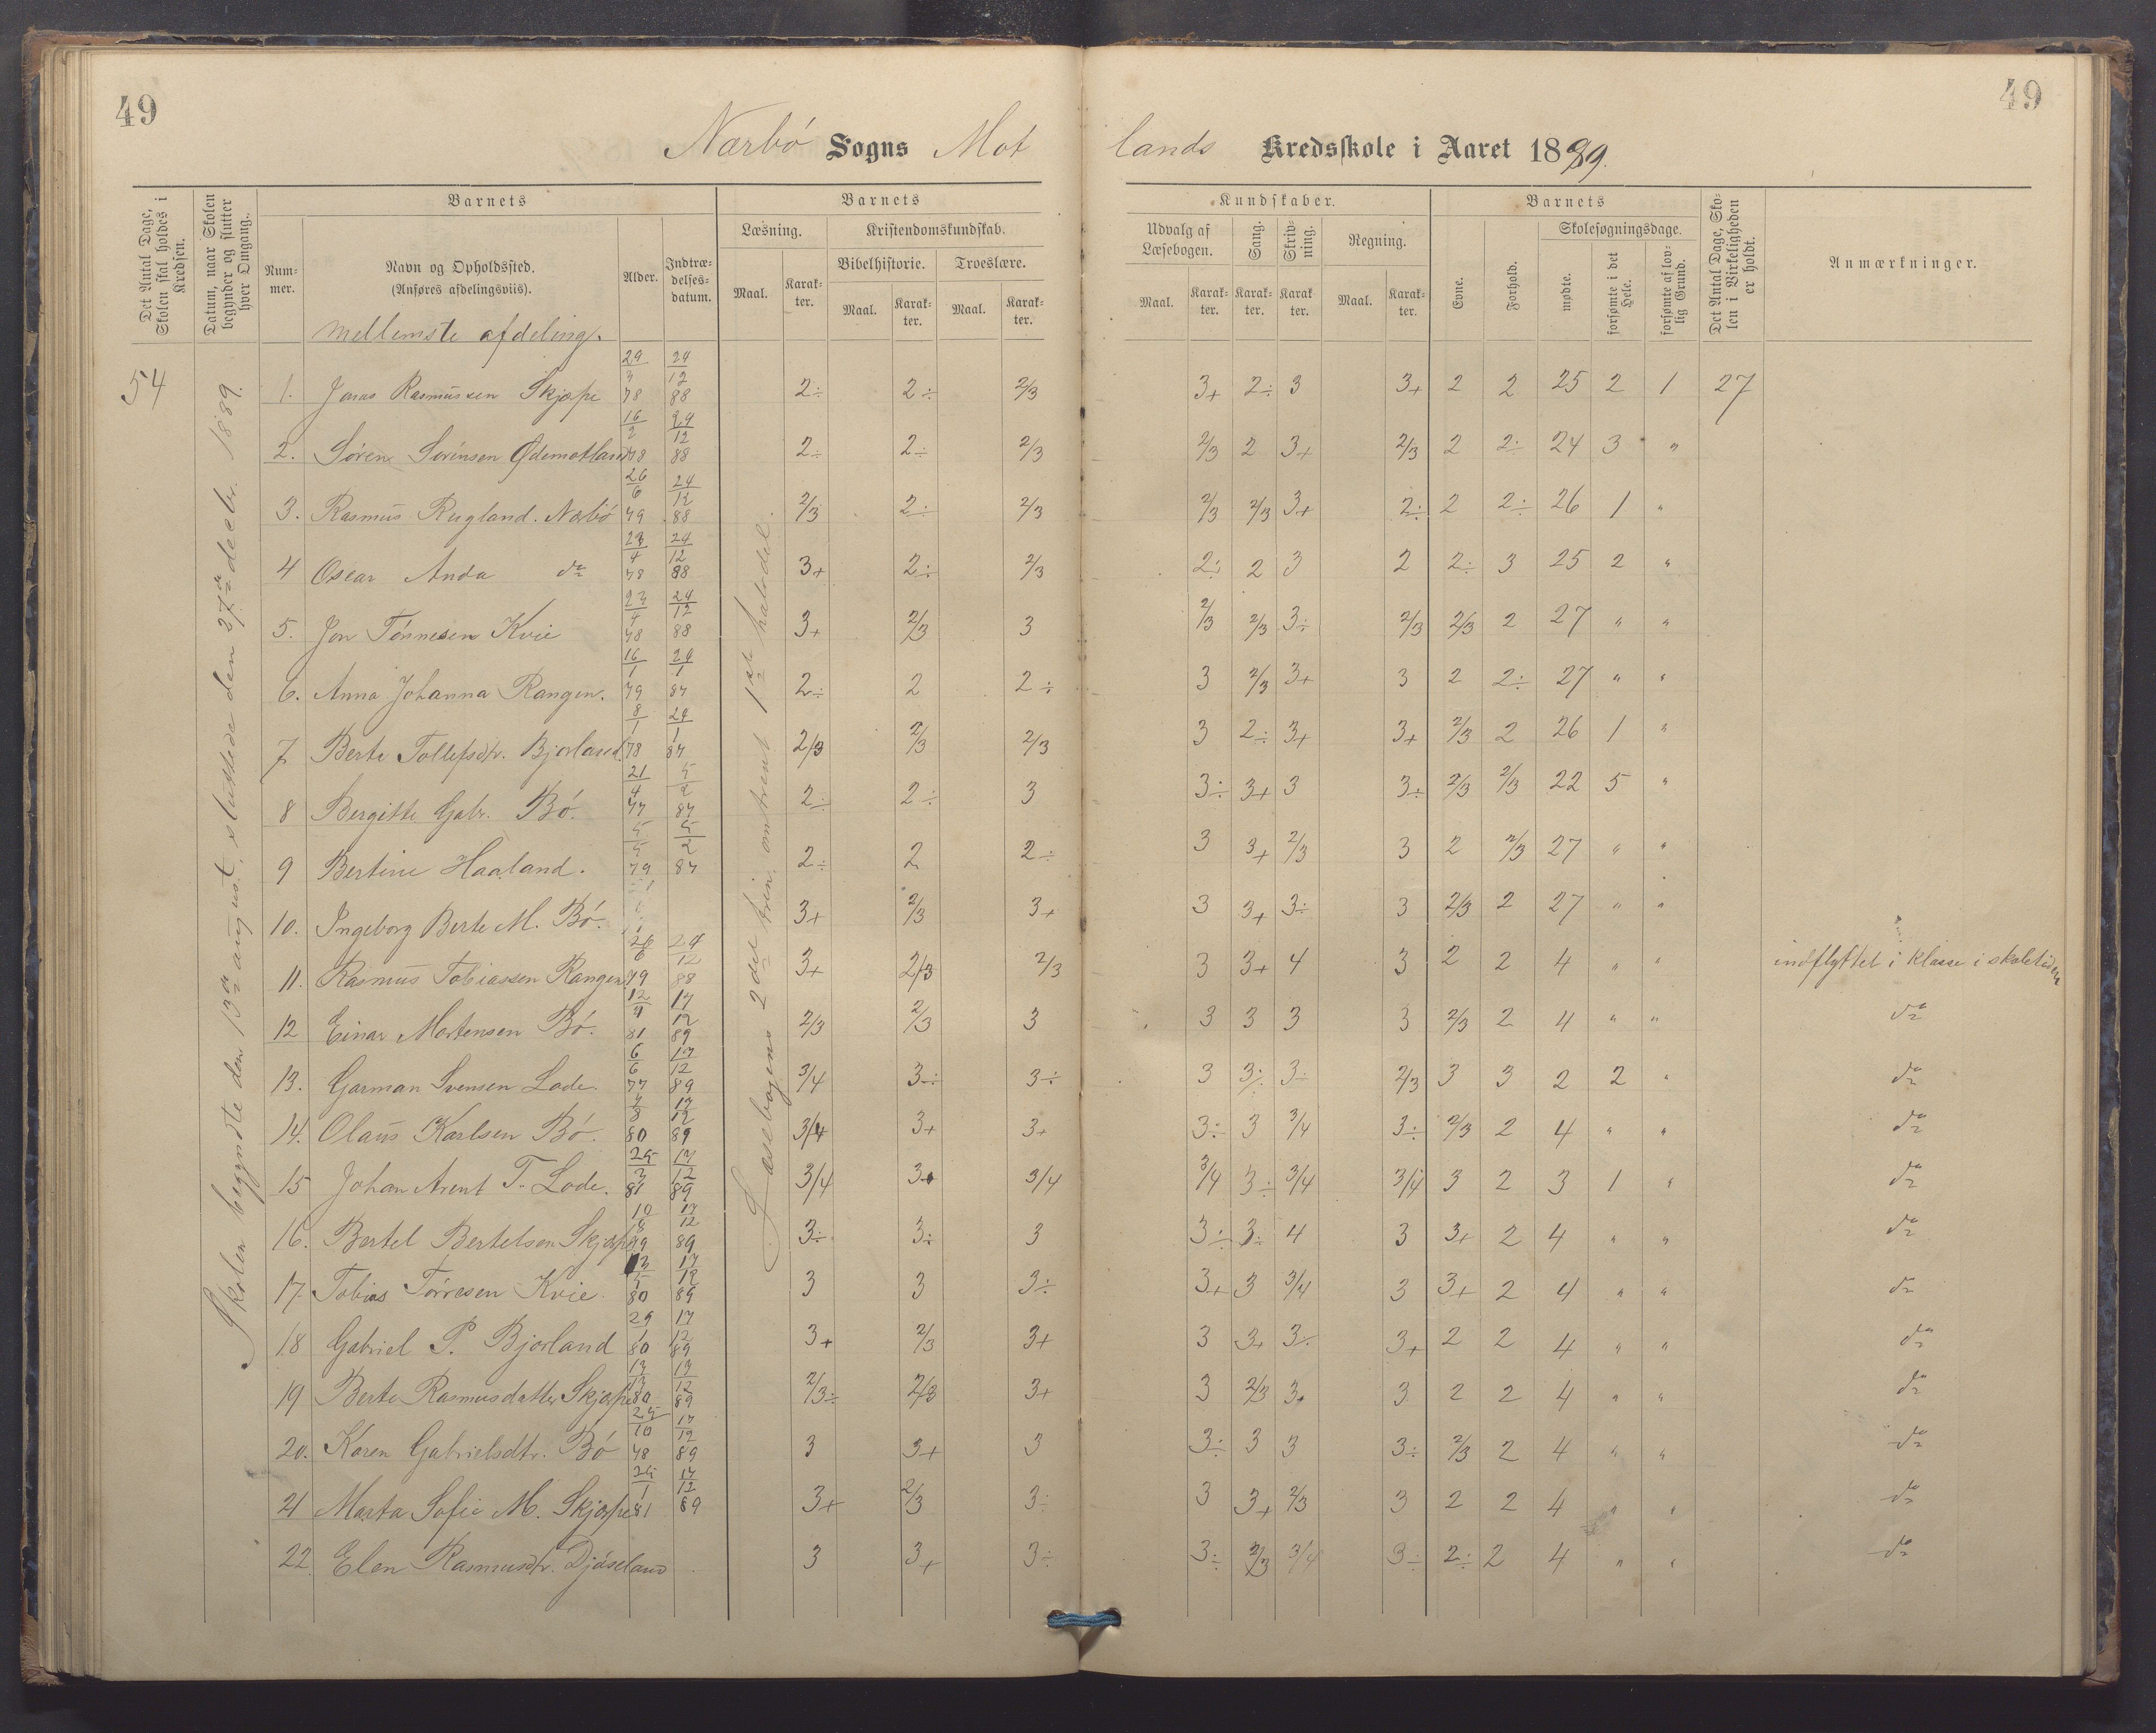 49
49
Nærbö Sogns Mot lands Kredsskole i Aaret 1889.
Det Antal Dage, Skolen skal holdes i Kredsen.
Datum, naar Skolen begynder og slutter hver Omgang.
Barnets
Num-mer.
Navn og Opholdssted. (Anføres afdelingsviis).
Alder.
Indtræ-delses-datum.
Barnets
Læsning.
Kristendomskundskab.
Bibelhistorie.
Troeslære.
Maal.
Karak-ter.
Maal.
Karak-ter.
Maal.
Karak-ter.
Kundskaber.
Udvalg af Læsebogen.
Sang.
Skriv-ning.
Regning.
Maal.
Karak-ter.
Karak-ter.
Karak ter.
Maal.
Karak-ter.
Barnets
Evne.
Forhold.
Skolesøgningsdage.
mødte.
forsømte i det Hele.
forsømte af lov-lig Grund.
Det Antal Dage, Sko-len i Virkeligheden er holdt.
Anmærkninger.
mellemste afdeling.
54
Skolen begyndte den 13de august, sluttede den 27de decbr. 1889.
Læsebogens 2det trin, omtrent 1ste halvdel.
1. Jonas Rasmussen Skjæpe 29/3 78 24/12 88 2÷ 2÷ 2/3 3+ 2÷ 3 3+ 2 2 25 2 1 27
2. Sören Sörensen Ödemotland 16/2 78 24/12 88 2÷ 2÷ 2/3 2/3 2 3+ 2/3 2 2÷ 24 3 "
3. Rasmus Rugland. Nærbö 26/6 79 24/12 88 2/3 2÷ 2/3 2/3 2/3 3+ 2÷ 2 2÷ 26 1 "
4 Oscar Anda do 23/4 78 24/12 88 3+ 2÷ 2/3 2÷ 2 3 2 2÷ 3 25 2 "
5. Jon Tönnesen Kvie 23/4 78 24/12 88 3+ 2/3 3 2/3 2/3 3÷ 2/3 2/3 2 27 " "
6. Anna Johanna Rangen. 16/1 79 24/1 87 2÷ 2 2÷ 3 2/3 3+ 3 2 2÷ 27 " "
7 Berte Tollefsdtr. Bjorland. 8/1 78 24/1 87 2/3 2/3 2/3 3 2÷ 3+ 3+ 2/3 2 26 1 "
8 Bergitte Gabr. Bö. 21/4 77 5/2 87 2÷ 2÷ 3 3÷ 3+ 3 3÷ 2/3 2/3 22 5 "
9 Bertine Haaland. 5/5 79 5/2 87 2÷ 2 2÷ 3 3+ 2/3 3 2 2/3 27 " "
10. Ingeborg Berte M. Bö. 3+ 2/3 3+ 3 3+ 3÷ 3 2/3 2 27 " "
11. Rasmus Tobiassen Rangen. 26/6 79 24/12 88 3+ 2/3 2/3 3 3+ 4 3 2 2 4 " " indflyttet i klasse i skoletiden
12 Einar Mortensen Bö. 12/4 81 17/12 89 2/3 2/3 3 3 3 3 3 2/3 2 4 " " do
13. Garman Svensen Lode. 6/6 77 17/12 89 3/4 3÷ 3÷ 3 3÷ 3÷ 2/3 3 3 2 2 " do
14. Olaus Karlsen Bö. 7/8 80 17/12 89 3/4 3+ 3+ 3÷ 3 3/4 3÷ 2/3 2 4 " " do
15 Johan Arent T. Lode. 25/3 81 17/12 89 3/4 3+ 3/4 3/4 3÷ 3/4 3/4 3 2 3 1 " do
16. Bertel Bertelsen Skjæpe 10/8 79 17/12 89 3÷ 3÷ 3 3÷ 3÷ 4 3 3+ 2 4 " " do
17. Tobias Törresen Kvie. 13/5 80 17/12 89 3 3 3÷ 3+ 3 3/4 3 3+ 2 4 " " do
18 Gabriel P. Bjorland 29/1 80 17/12 89 3+ 2/3 3+ 3 3+ 3÷ 3+ 2 2 4 " " do
19 Berte Rasmusdatter Skjæpe 80 17/12 89 2/3÷ 2/3 3+ 3 2/3 3+ 3 2 2 4 " " do
20. Karen Gabrielsdtr. Bö 25/10 78 17/12 89 3 3+ 3 3÷ 3 3 3÷ 2/3 2 4 " " do
21 Marta Sofie M. Skjæpe 25/1 81 17/12 89 3+ 2/3 3÷ 3 3+ 2/3 3 2 2 4 " " do
22. Elen Rasmusdtr. Djöseland 3 3+ 3÷ 3÷ 2/3 3/4 3÷ 2÷ 2 4 " " do